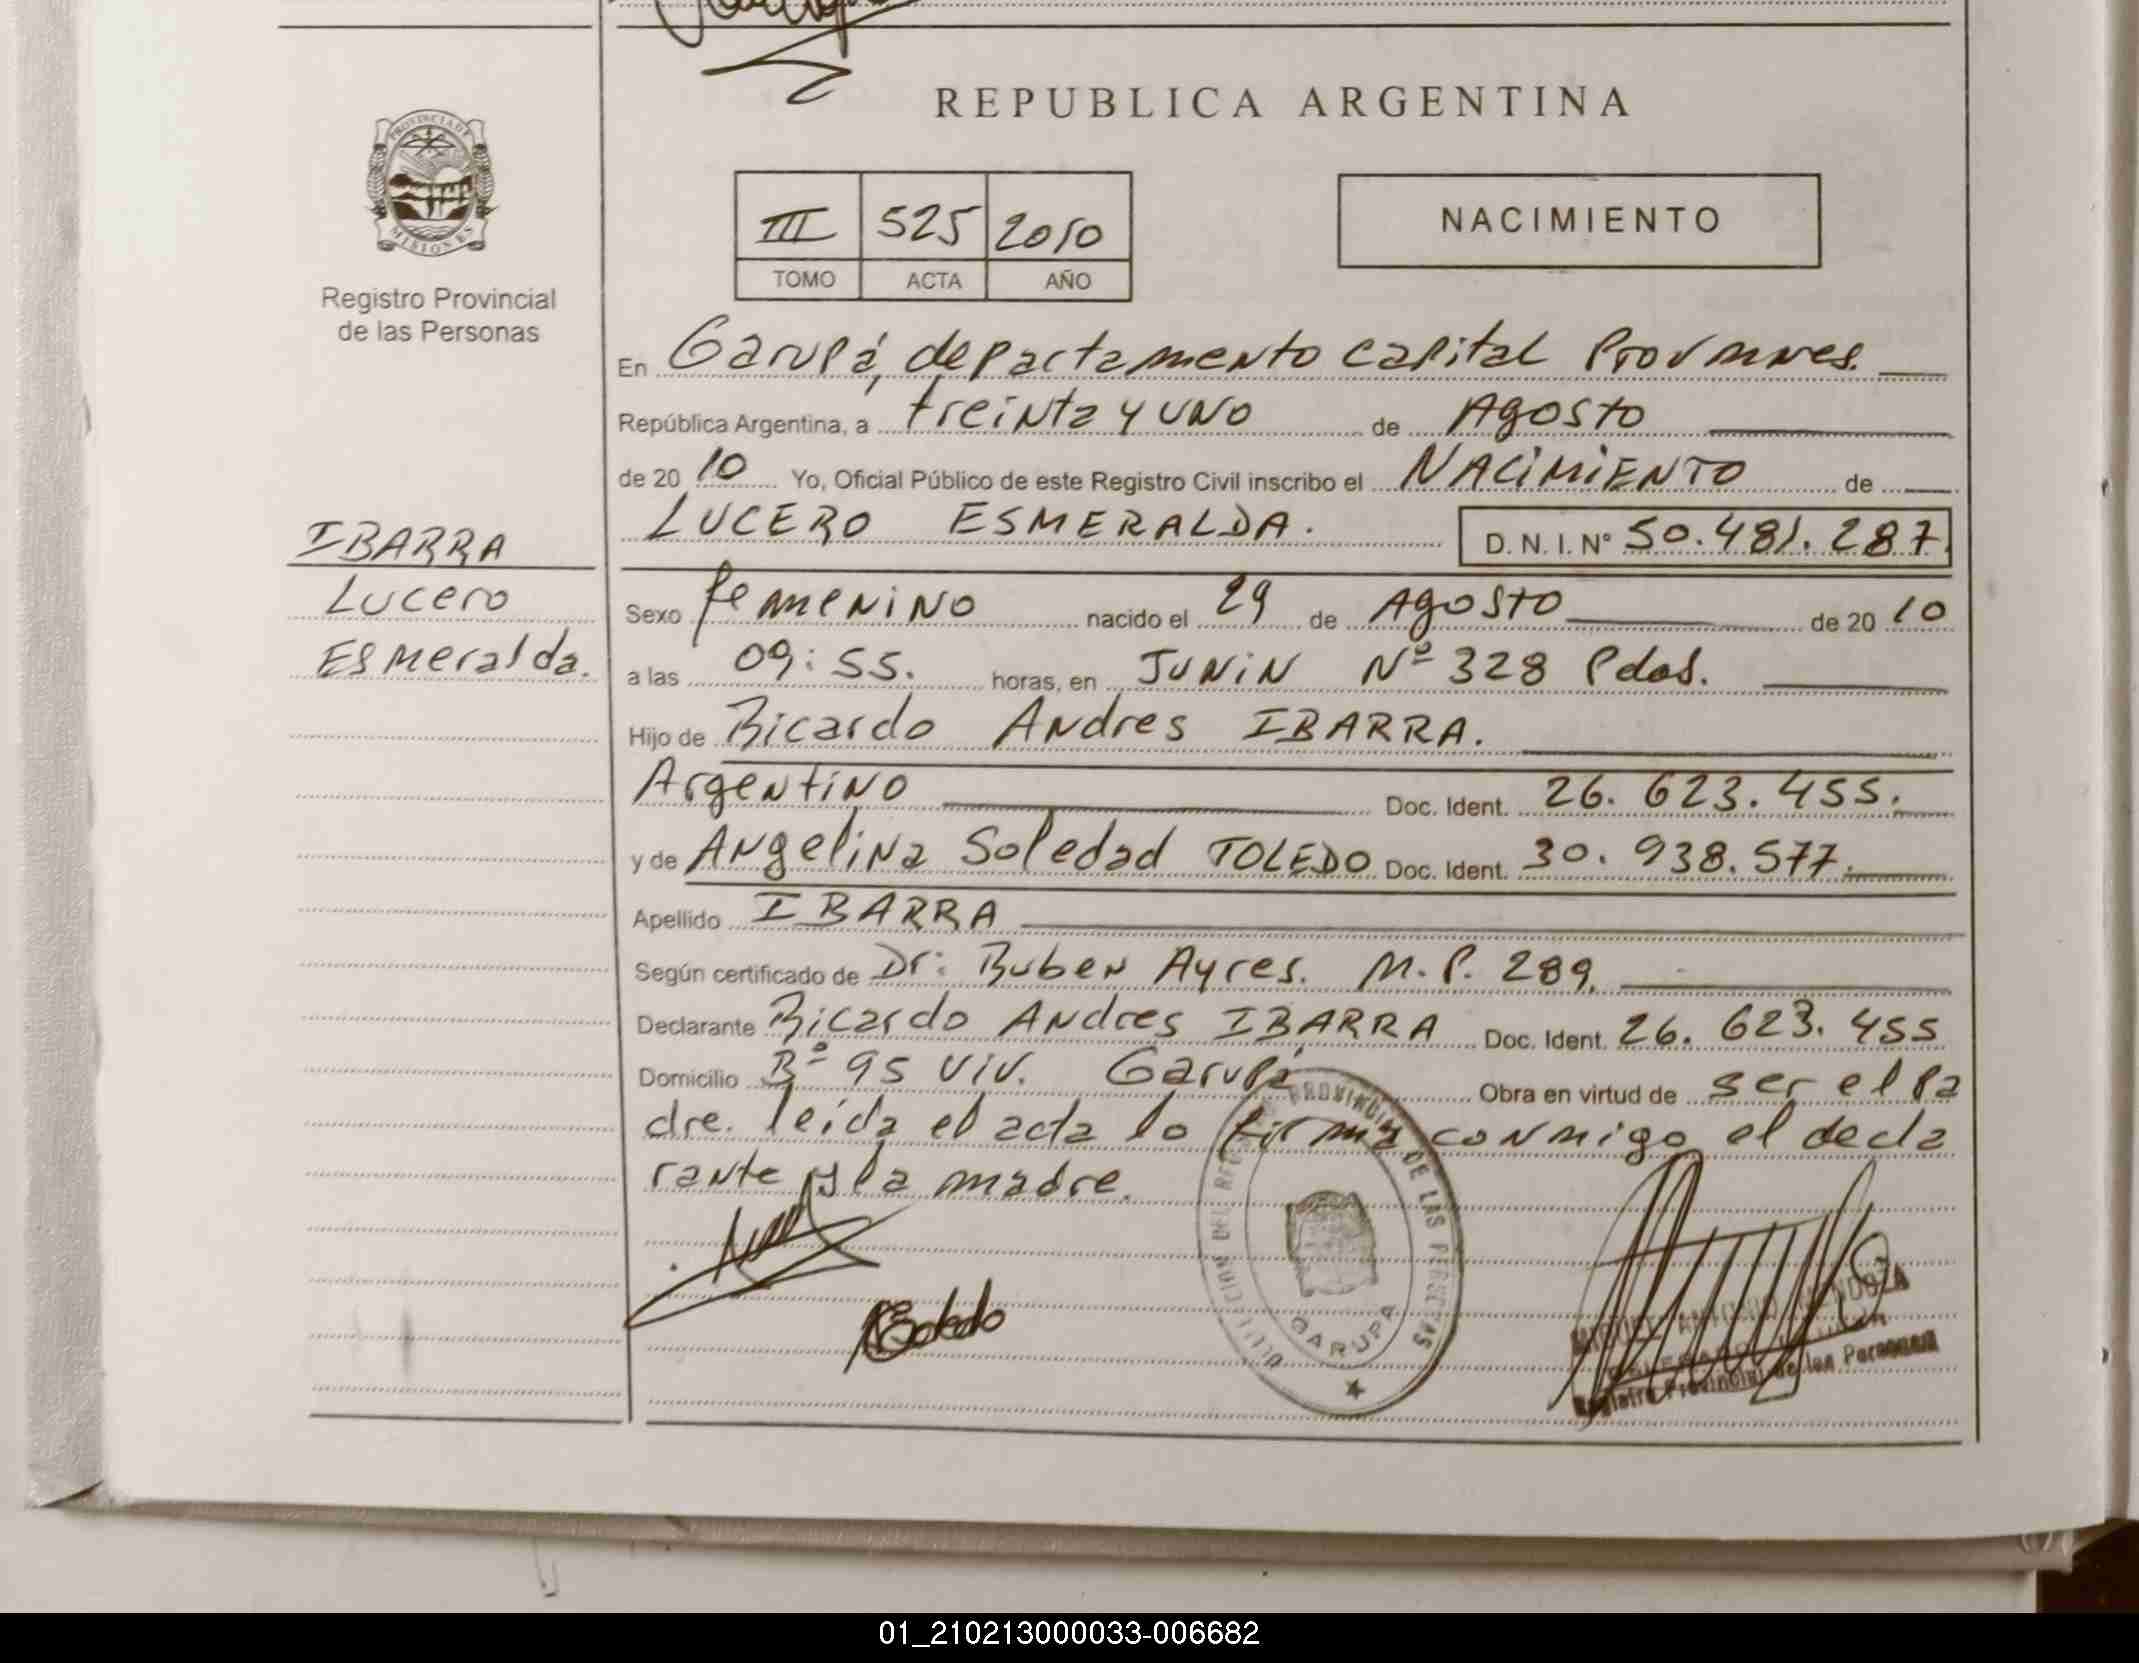 REPUBLICA ARGENTINA
PROVINCIA DE
MISIONES
Registro Provincial
de las Personas
III 525 2010
TOMO ACTA AÑO
NACIMIENTO
En Garupá, departamento capital Prov mnes.
República Argentina, a treinta y uno de Agosto
de 20 10 Yo, Oficial Público de este Registro Civil inscribo el NACIMIENTO de
LUCERO ESMERALDA. D. N. I. Nº 50.481.287.
IBARRA
Lucero
Esmeralda.
Sexo femenino nacido el 29 de Agosto de 20 10
a las 09:55. horas, en JUNIN Nº 328 Pdas.
Hijo de Ricardo Andres IBARRA.
Argentino Doc. Ident. 26.623.455.
y de Angelina Soledad TOLEDO Doc. Ident. 30.938.577.
Apellido IBARRA
Según certificado de Dr: Ruben Ayres. M.P. 289.
Declarante Ricardo Andres IBARRA Doc. Ident. 26.623.455
Domicilio Bº 95 Viv. Garupá Obra en virtud de ser el pa
dre. leida el acta lo firma conmigo el decla
rante y la madre.
PROVINCIAL DE LAS PERSONAS
GARUPA
MIGUEL ANTONIO MENDOZA
Registro Provincial de las Personas
01_210213000033-006682